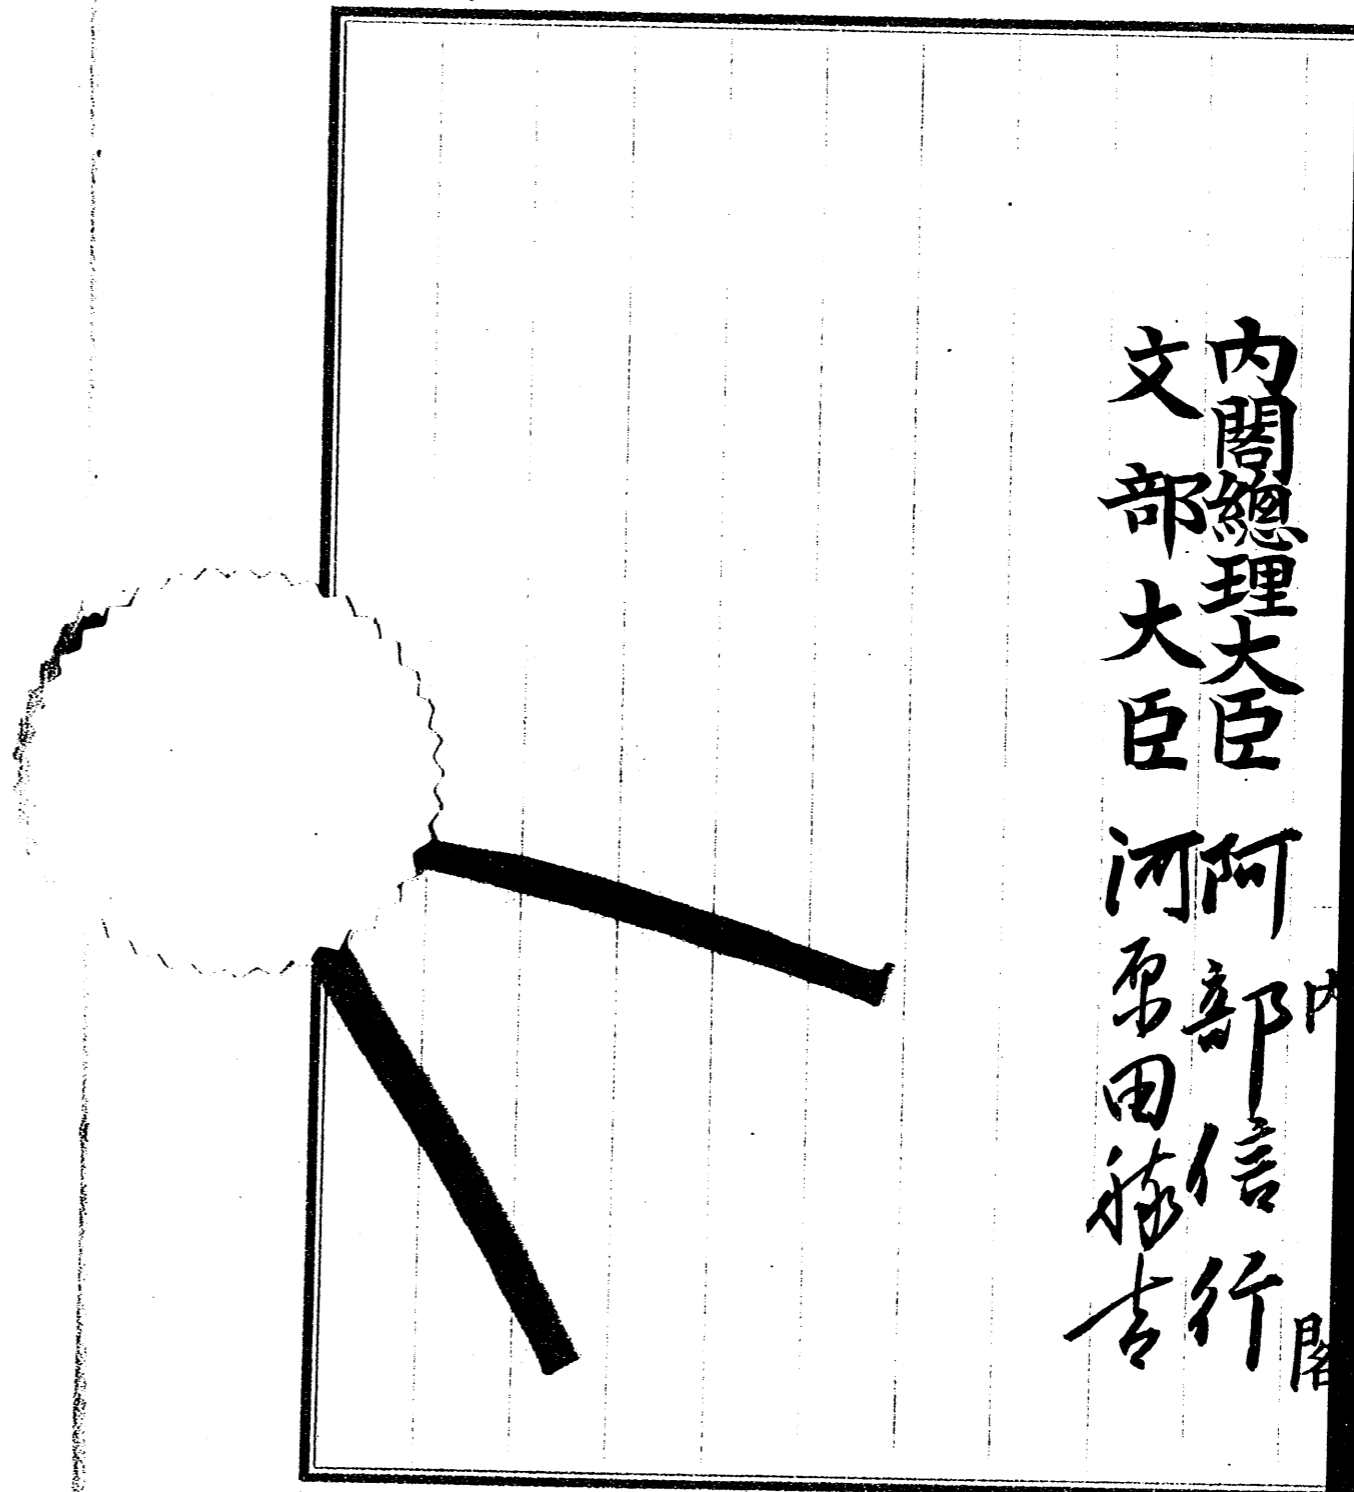 内閣
内閣總理大臣 阿部信行
文部大臣 河原田稼吉